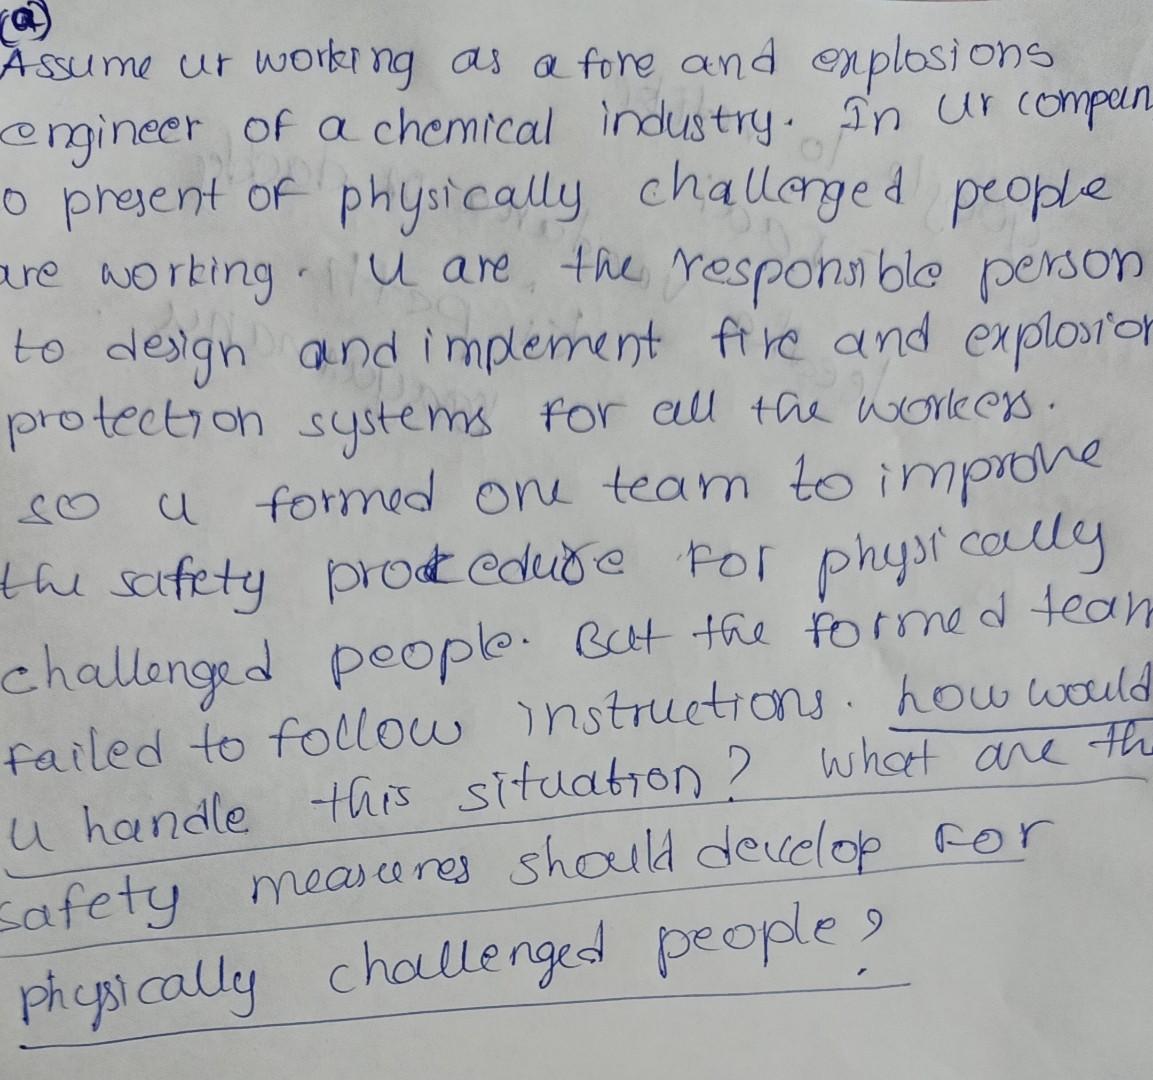 (a)
Assume ur working as a fore and explosions
engineer of a chemical industry. In ur compan
0 present of physically challenged people
are working. u are the responsible person
to design and implement fire and explosion
protection systems for all the workers.
so u formed one team to improve
the safety procedure for physically
challenged people. But the formed team
failed to follow instructions. how would
u handle this situation? what are th
safety measures should develop for
physically challenged people?